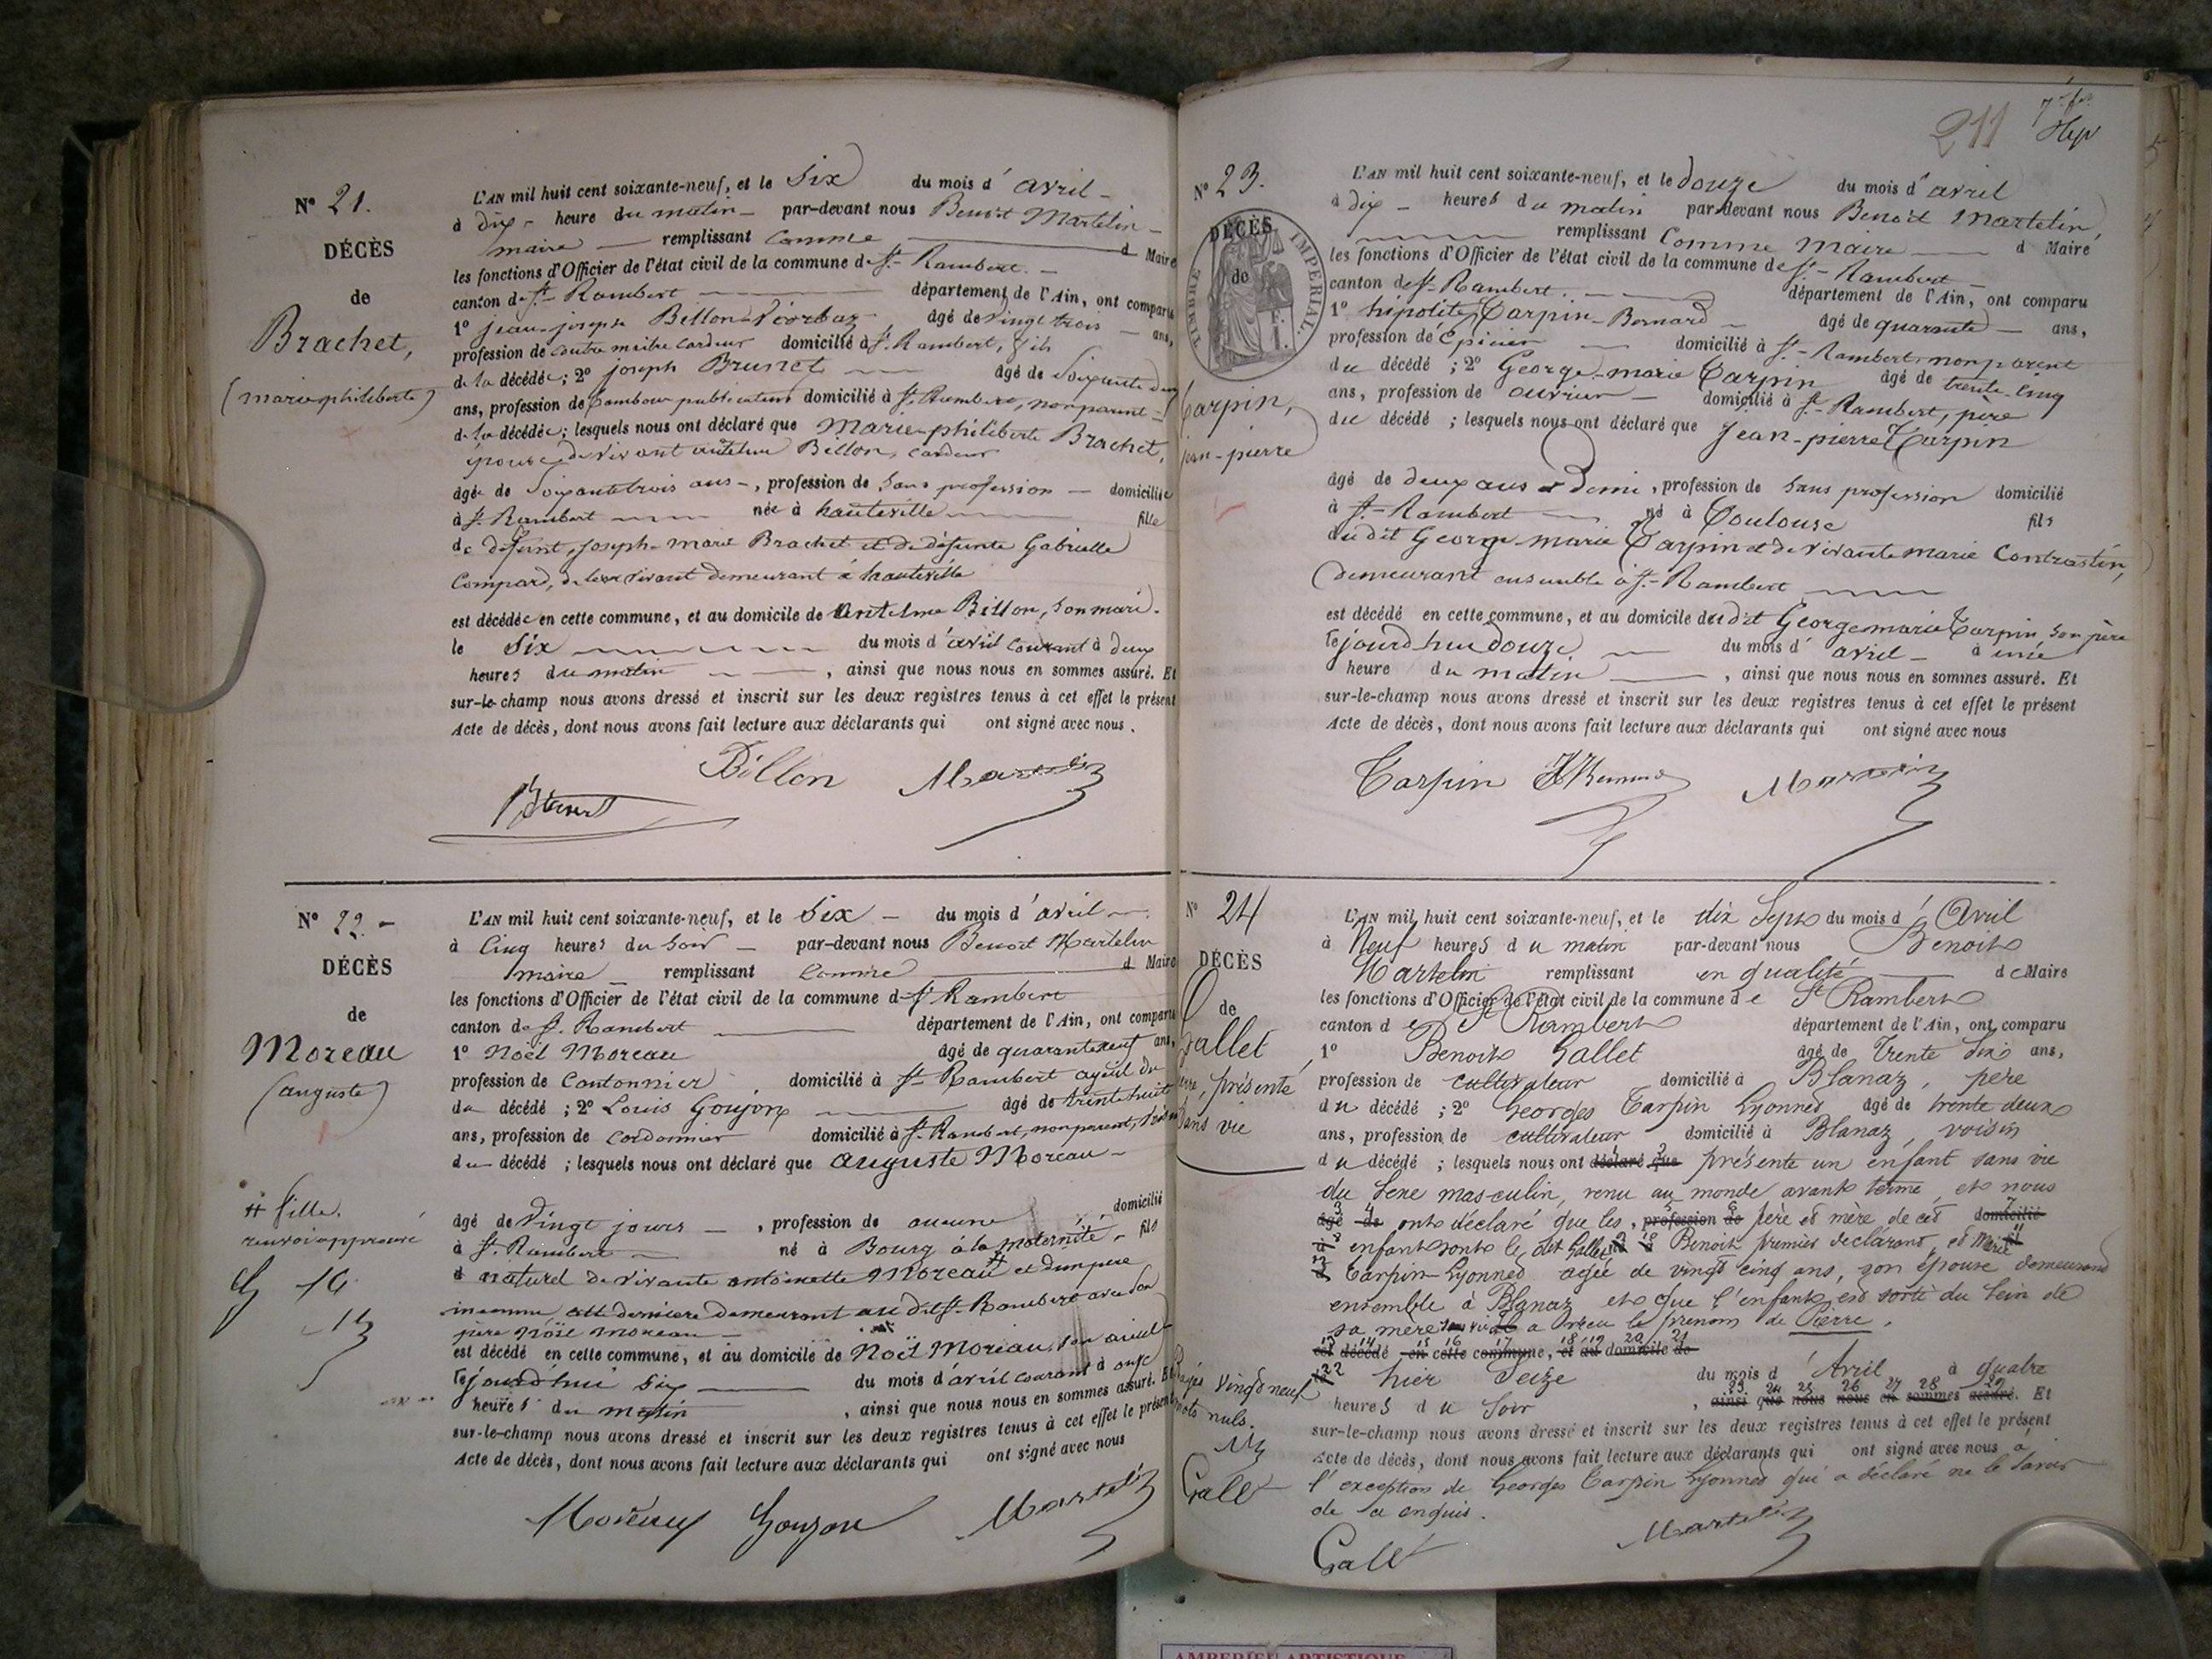 N° 21.
DÉCÈS
de
Brachet,
(marie philiberte)
L'AN mil huit cent soixante-neuf, et le six du mois d' avril
à dix heure du matin par-devant nous Benoit Martelin
maire remplissant comme d Maire
les fonctions d'Officier de l'état civil de la commune de St Rambert
canton de St Rambert département de l'Ain, ont comparu
1° jean-joseph Billon âgé de vingt trois ans,
profession de contre maitre cardeur domicilié à St Rambert, fils
de la décédée; 2° joseph Brunet âgé de soixante deux
ans, profession de tambour publicateur domicilié à St Rambert, non parent
de la décédée; lesquels nous ont déclaré que Marie-philiberte Brachet,
épouse de vivant antelme Billon, cardeur
âgée de soixante trois ans, profession de sans profession domiciliée
à St Rambert née à hauteville fille
de défunt joseph-marie Brachet et de défunte Gabrielle
Compard, de leur vivant demeurant à hauteville
est décédée en cette commune, et au domicile de antelme Billon, son mari.
le six du mois d'avril courant à deux
heures du matin, ainsi que nous nous en sommes assuré. Et
sur-le-champ nous avons dressé et inscrit sur les deux registres tenus à cet effet le présent
Acte de décès, dont nous avons fait lecture aux déclarants qui ont signé avec nous.
Billon Martelin
Brunet
N° 22.
DÉCÈS
de
Moreau
(auguste)
# fille.
renvoi approuvé
L'AN mil huit cent soixante-neuf, et le six du mois d'avril
à cinq heures du soir par-devant nous Benoit Martelin
maire remplissant comme d Maire
les fonctions d'Officier de l'état civil de la commune de St Rambert
canton de St Rambert département de l'Ain, ont comparu
1° Noël Moreau âgé de quarante neuf ans,
profession de Cantonnier domicilié à St Rambert ayeul du
du décédé; 2° Louis Goujon âgé de trente huit
ans, profession de cordonnier domicilié à St Rambert, non parent, voisin
du décédé; lesquels nous ont déclaré que auguste Moreau
âgé de vingt jours, profession de aucune domicilié
à St Rambert né à Bourg à la maternité fils
naturel de vivante antoinette Moreau # et d'un père
inconnu cette dernière demeurant au dit St Rambert avec son
père Noël Moreau
est décédé en cette commune, et au domicile de Noël Moreau, son aieul
le jourd'hui six du mois d'avril courant à onze
heures du matin, ainsi que nous nous en sommes assuré. Et
sur-le-champ nous avons dressé et inscrit sur les deux registres tenus à cet effet le présent
Acte de décès, dont nous avons fait lecture aux déclarants qui ont signé avec nous
Moreau Goujon Martelin
211
N° 23.
DÉCÈS
de
TIMBRE IMPÉRIAL.
Tarpin,
jean-pierre
L'AN mil huit cent soixante-neuf, et le douze du mois d'avril
à dix heures du matin par-devant nous Benoit Martelin,
remplissant comme maire d Maire
les fonctions d'Officier de l'état civil de la commune de St Rambert
canton de St Rambert. département de l'Ain, ont comparu
1° hipolite Tarpin-Bernard âgé de quarante ans,
profession de Epicier domicilié à St Rambert, non parent
du décédé; 2° George-marie Tarpin âgé de trente cinq
ans, profession de ouvrier domicilié à St Rambert, père
du décédé; lesquels nous ont déclaré que jean-pierre Tarpin
âgé de deux ans et demi, profession de sans profession domicilié
à St Rambert né à Toulouse fils
du dit George marie Tarpin et de vivante marie Contrastin,
demeurant ensemble à St Rambert
est décédé en cette commune, et au domicile du dit George marie Tarpin, son père
le jourd'hui douze du mois d'avril à une
heure du matin, ainsi que nous nous en sommes assuré. Et
sur-le-champ nous avons dressé et inscrit sur les deux registres tenus à cet effet le présent
Acte de décès, dont nous avons fait lecture aux déclarants qui ont signé avec nous
Tarpin Martelin
N° 24
DÉCÈS
de
Gallet
présenté
sans vie
Rayés vingt neuf
mots nuls.
Gallet
L'AN mil huit cent soixante-neuf, et le dix sept du mois d'Avril
à Neuf heures du matin par-devant nous Benoit
Martelin remplissant en qualité de Maire
les fonctions d'Officier de l'état civil de la commune de St Rambert
canton de St Rambert département de l'Ain, ont comparu
1° Benoit Gallet âgé de Trente six ans,
profession de cultivateur domicilié à Blanaz, père
du décédé; 2° Georges Tarpin Lyonnet âgé de trente deux
ans, profession de cultivateur domicilié à Blanaz, voisin
du décédé; lesquels nous ont déclaré que présenté un enfant sans vie
du sexe masculin, venu au monde avant terme, et nous
âgé de ont déclaré que les, profession de père et mère de cet domicilié
à enfant sont le dit Gallet Benoit premier déclarant, et Marie
Tarpin-Lyonnet agée de vingt cinq ans, son épouse demeurant
ensemble à Blanaz et que l'enfant est sorti du sein de
sa mère sans vie a reçu le prénom de Pierre.
est décédé en cette commune, et au domicile de
le hier seize du mois d'Avril à quatre
heures du soir, ainsi que nous nous en sommes assuré. Et
sur-le-champ nous avons dressé et inscrit sur les deux registres tenus à cet effet le présent
Acte de décès, dont nous avons fait lecture aux déclarants qui ont signé avec nous à
l'exception de Georges Tarpin Lyonnet qui a déclaré ne le savoir
de ce enquis.
Gallet Martelin
AMBERIEU ARTISTIQUE